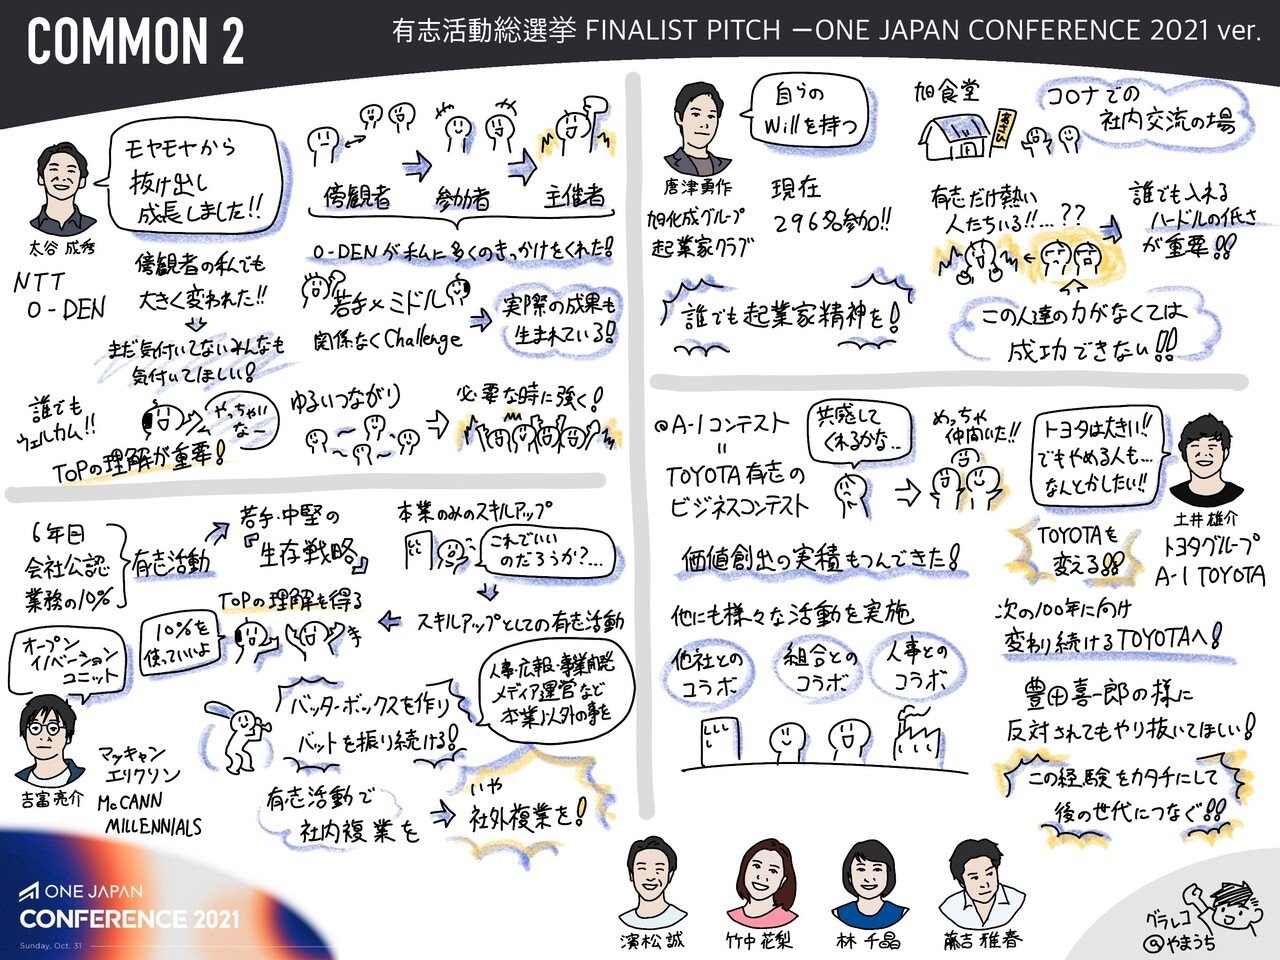 COMMON 2
有志活動総選挙 FINALIST PITCH －ONE JAPAN CONFERENCE 2021 ver.
モヤモヤから
抜け出し
成長しました!!
太谷 成秀
NTT
O-DEN
傍観者
参加者
主催者
O-DENが私に多くのきっかけをくれた!
傍観者の私でも
大きく変われた!!
まだ気付いてないみんなも
気付いてほしい!
若手×ミドル
関係なくChallenge
実際の成果も
生まれている!
誰でも
ウェルカム!!
やっちゃい
な～
TOPの理解が重要!
ゆるいつながり
必要な時に強く!
自らの
Willを持つ
唐津勇作
旭化成グループ
起業家クラブ
現在
296名参加!!
旭食堂
コロナでの
社内交流の場
有志だけ熱い
人たちいる!!...??
誰でも入れる
ハードルの低さ
が重要!!
誰でも起業家精神を!
この人達の力がなくては
成功できない!!
6年目
会社公認
業務の10%
有志活動
若手・中堅の
『生存戦略』
本業のみのスキルアップ
これでいい
のだろうか?...
スキルアップとしての有志活動
TOPの理解も得る
10%を
使っていいよ
オープン
イノベーション
ユニット
吉富亮介
マッキャン
エリクソン
McCANN
MILLENNIALS
バッターボックスを作り
バットを振り続ける!
人事・広報・事業開発
メディア運営など
本業以外の事を
有志活動で
社内複業を
いや
社外複業を!
@A-1コンテスト
=
TOYOTA有志の
ビジネスコンテスト
共感して
くれるかな...
めっちゃ
仲間いた!!
トヨタは大きい!!
でもやめる人も...
なんとかしたい!!
土井雄介
トヨタグループ
A-1 TOYOTA
価値創出の実積もつんできた!
TOYOTAを
変える!!
他にも様々な活動を実施
他社との
コラボ
組合との
コラボ
人事との
コラボ
次の100年に向け
変わり続けるTOYOTAへ!
豊田喜一郎の様に
反対されてもやり抜いてほしい!
この経験をカタチにして
後の世代につなぐ!!
濱松誠
竹中花梨
林千晶
藤吉雅春
グラレコ
@やまうち
ONE JAPAN
CONFERENCE 2021
Sunday, Oct. 31